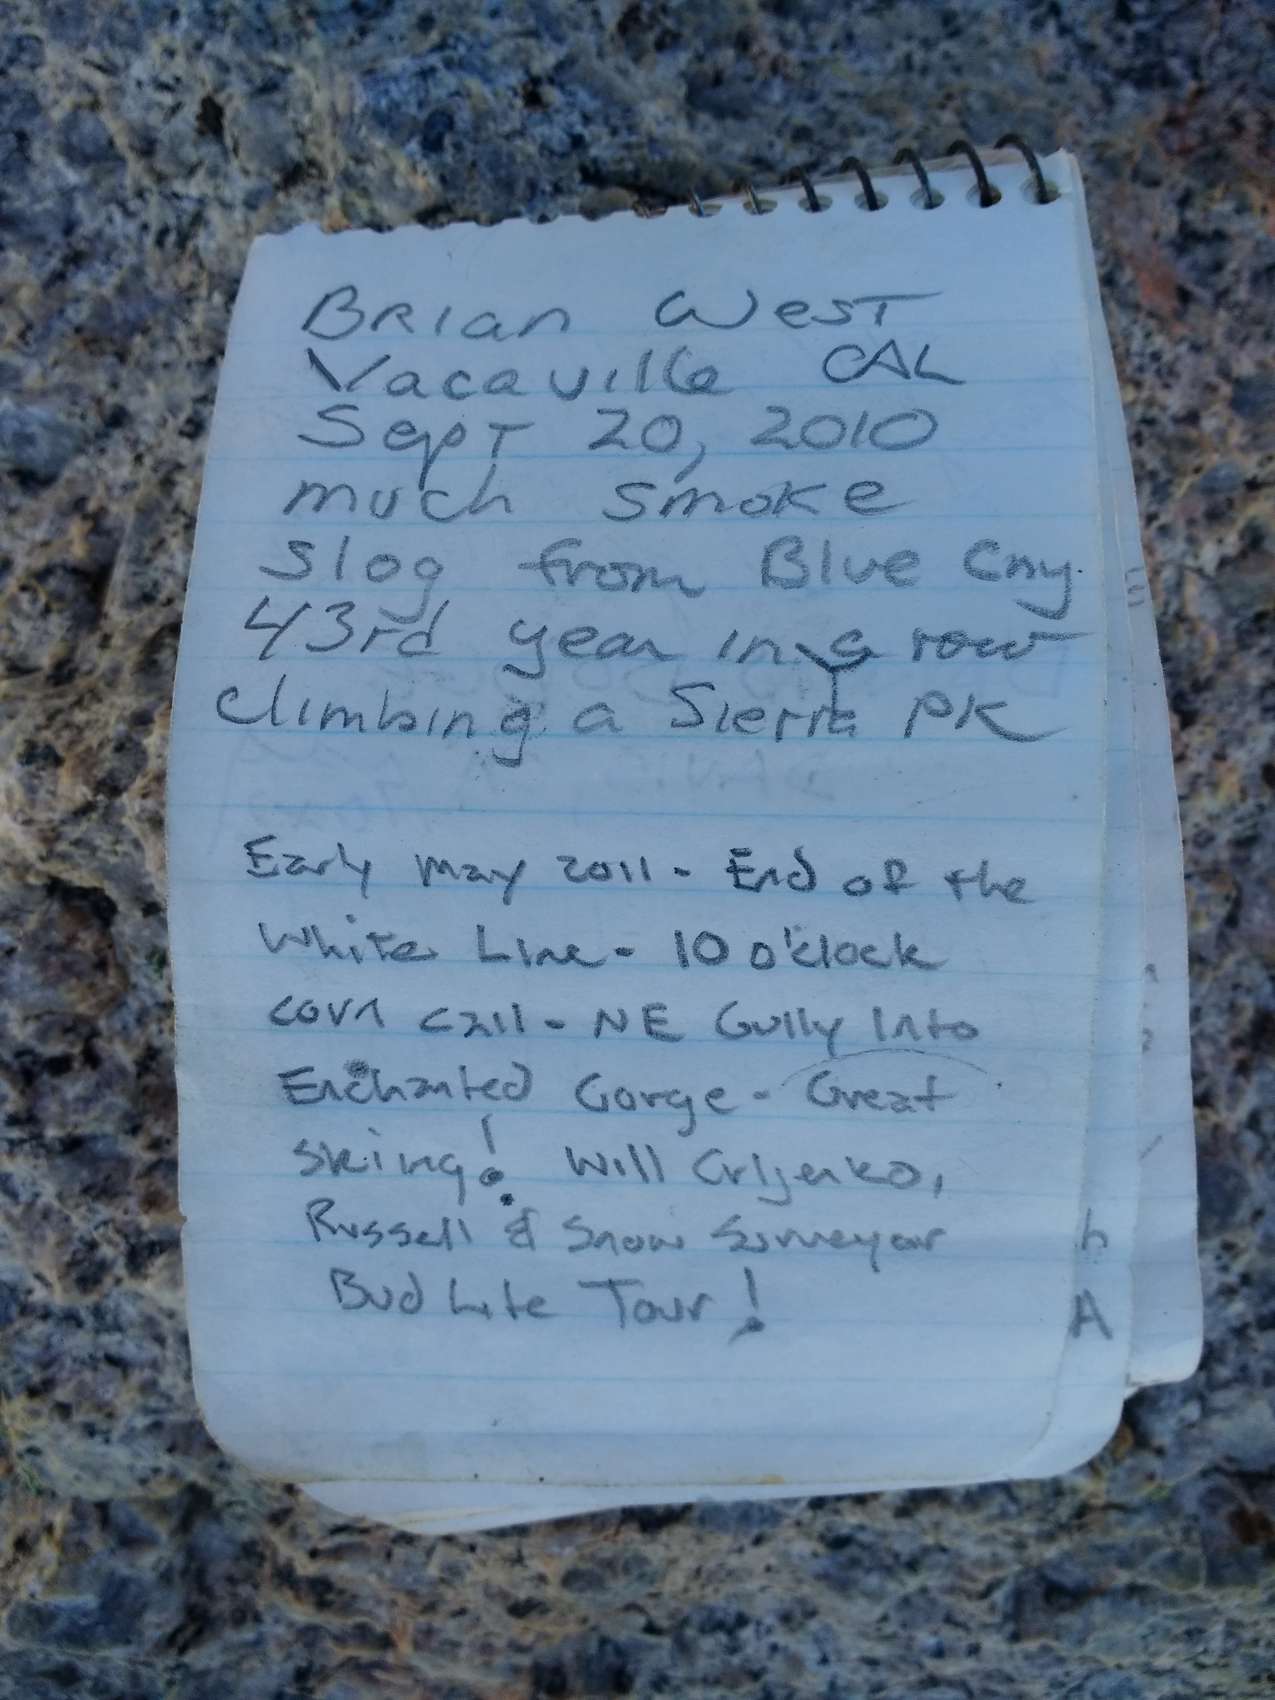 Brian West
Vacaville CAL
Sept 20, 2010
much smoke
slog from Blue Cny.
43rd year in a row
climbing a Sierra PK
Early May 2011 - End of the
White Line - 10 o'clock
corn call - NE Gully Into
Enchanted Gorge - Great
skiing! Will
Russell & Snow Surveyor
Bud Lite Tour!
h
A